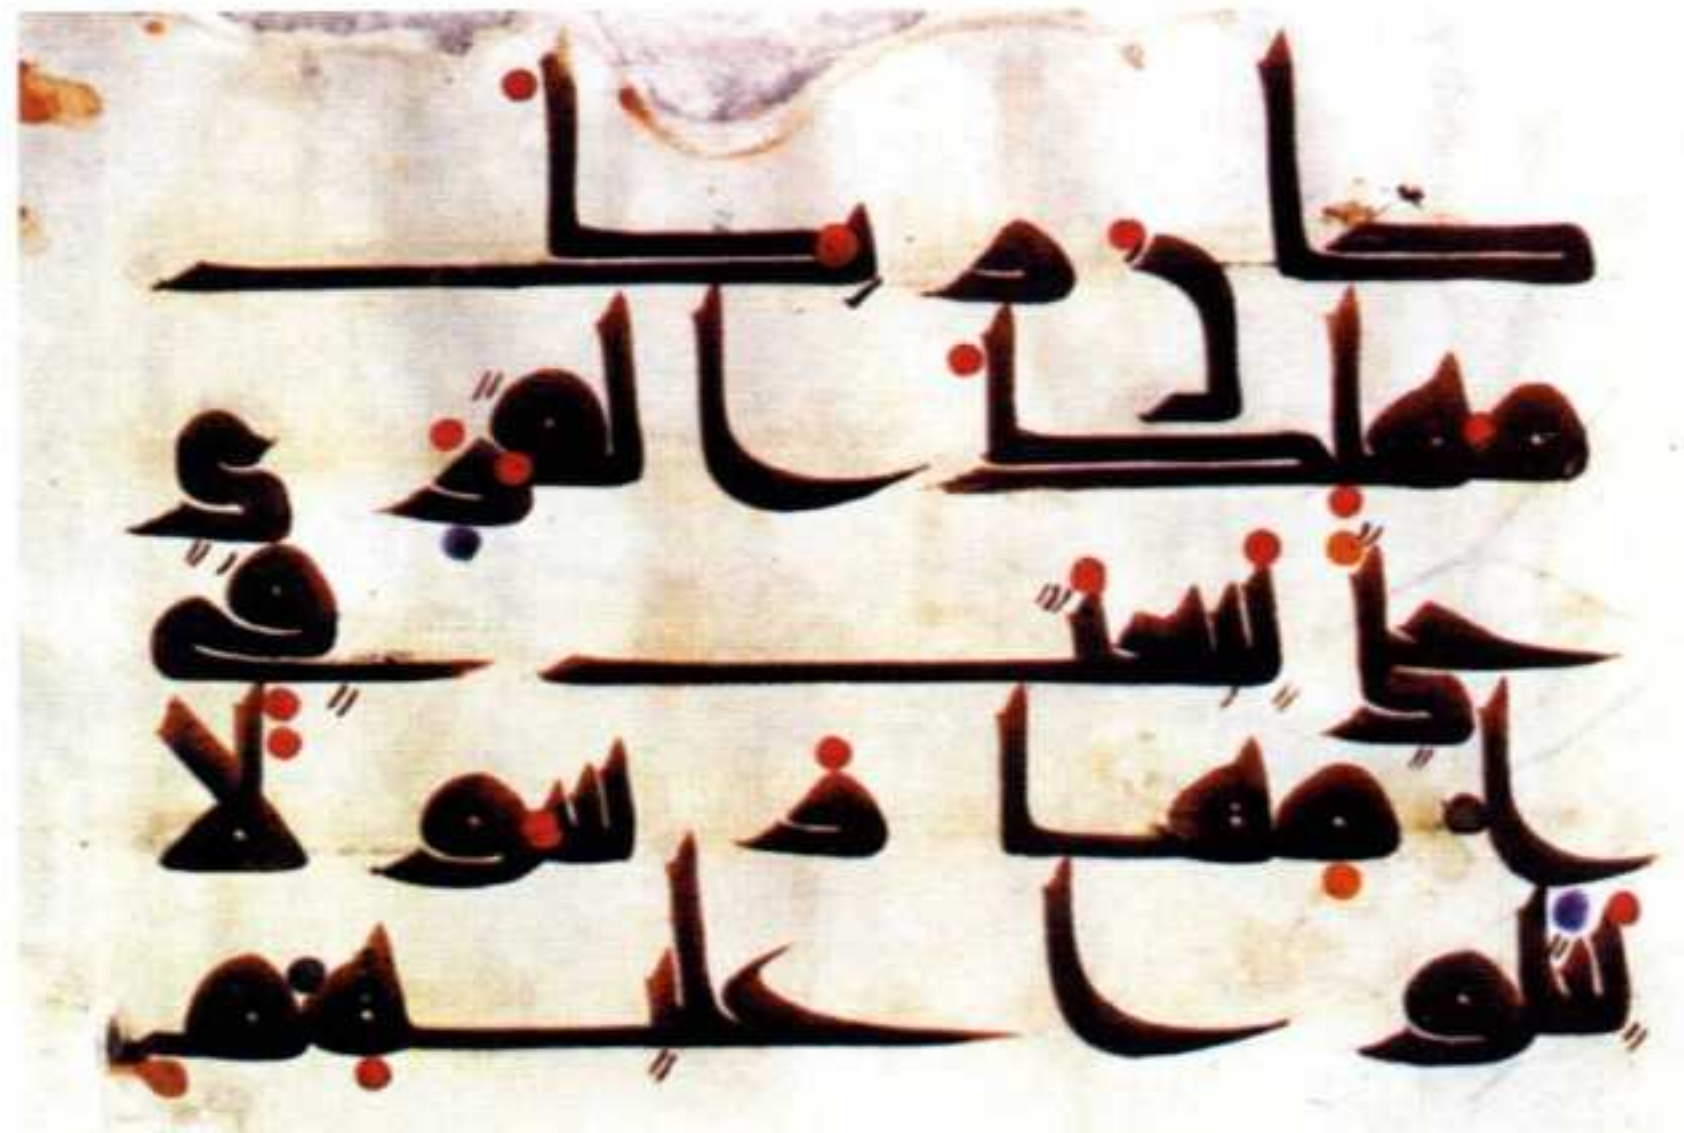 كان ربك
مهلك القرى
حتى يبعث في
أمها رسولا
يتلوا عليهم